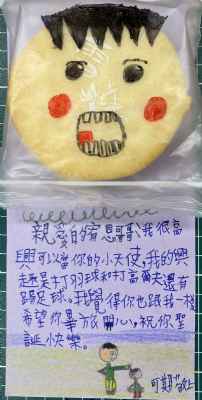 親愛的宥恩哥:我很高
興可以當你的小天使,我的興
趣是打羽球和打高爾夫還有
踢足球。我覺得你也跟我一樣
希望你畢旅開心,祝你聖
誕快樂。
可期敬上